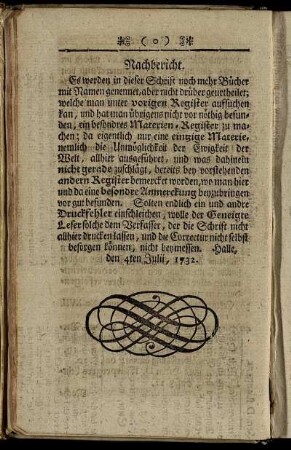 ( o )
Nachbericht.
Es werden in dieser Schrift noch mehr Bücher
mit Namen genennet, aber nicht drüber geurtheilet;
welche man unter vorigen Register aufsuchen
kan, und hat man übrigens nicht vor nöthig befun-
den, ein besondres Materien-Register zu ma-
chen; da eigentlich nur eine einzige Materie,
nemlich die Unmöglichkeit der Ewigkeit der
Welt, allhier ausgeführet, und was dahinein
nicht gerade zuschlägt, bereits bey vorstehenden
andern Register bemercket worden, wo man hier
und da eine besondre Anmerckung beyzubringen
vor gut befunden. Solten endlich ein und andre
Druckfehler einschleichen, wolle der Geneigte
Leser solche dem Verfasser, der die Schrift nicht
allhier drucken lassen, und die Correctur nicht selbst
besorgen können, nicht beymessen. Halle,
den 4ten Julii, 1732.